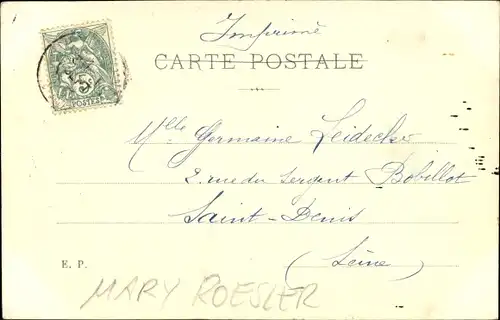 Imprimé
CARTE POSTALE
5
POSTES
Mlle Germaine Leidecker
2. rue du Sergent Bobillot
Saint-Denis
(Seine)
E. P.
MARY ROESLER